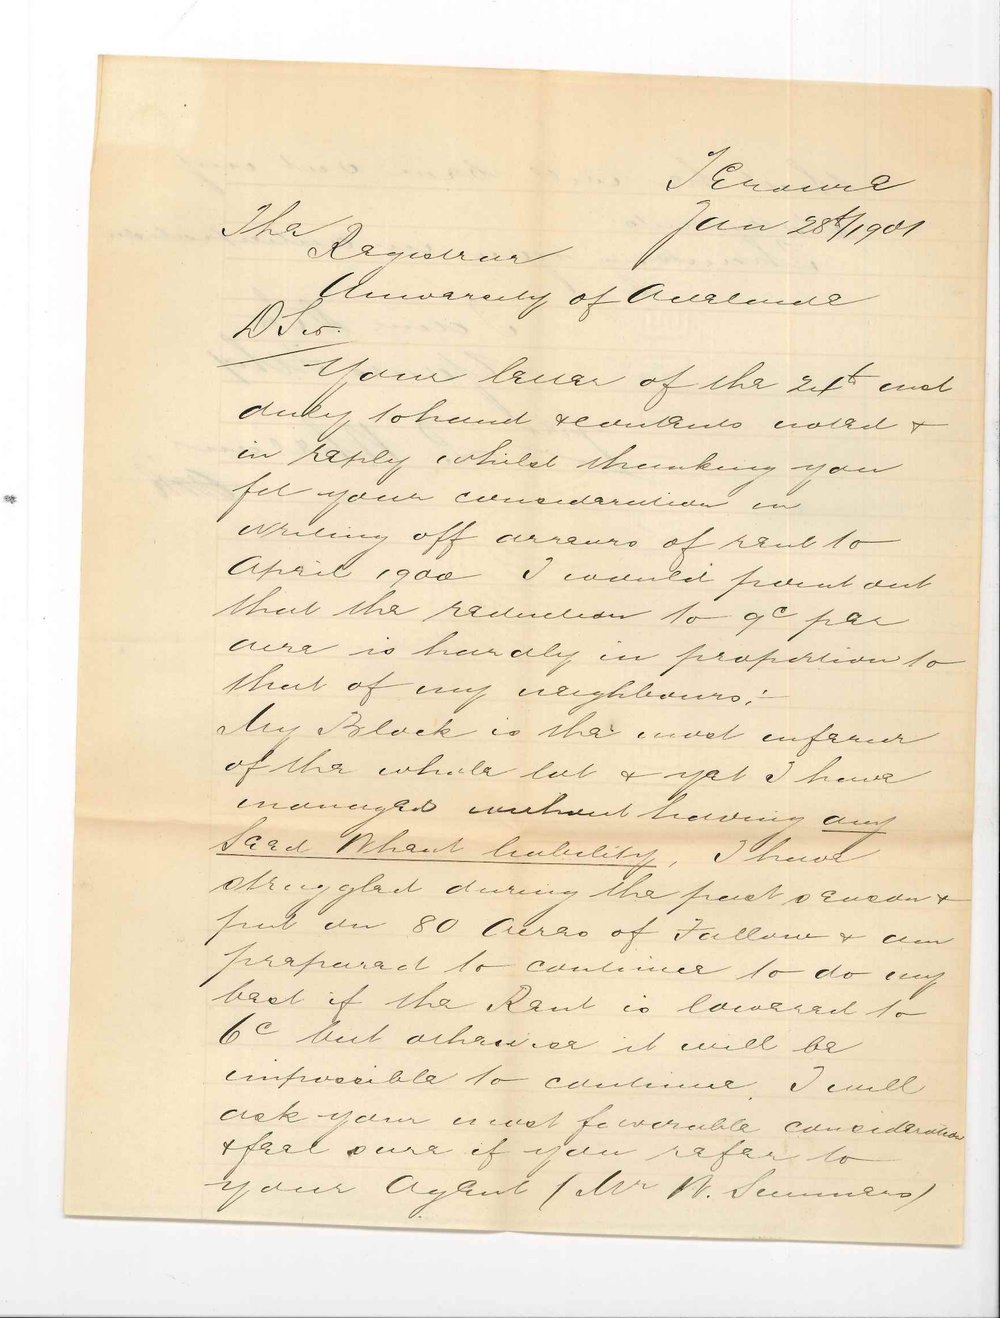 Terowie
Jan 28th/1901
The
Registrar
University of Adelaide
D Sir.
Your letter of the 24th inst
duly to hand & contents noted &
in reply whilst thanking you
for your consideration in
writing off arrears of rent to
April 1900 I would point out
that the reduction to 9d per
acre is hardly in proportion to
that of my neighbours:-
My Block is the most inferior
of the whole lot & yet I have
managed without having any
Seed Wheat liability, I have
struggled during the past season &
put in 80 Acres of Fallow & am
prepared to continue to do my
best if the Rent is lowered to
6d but otherwise it will be
impossible to continue. I will
ask your most favorable consideration
& feel sure if you refer to
your Agent (Mr W. Summers)